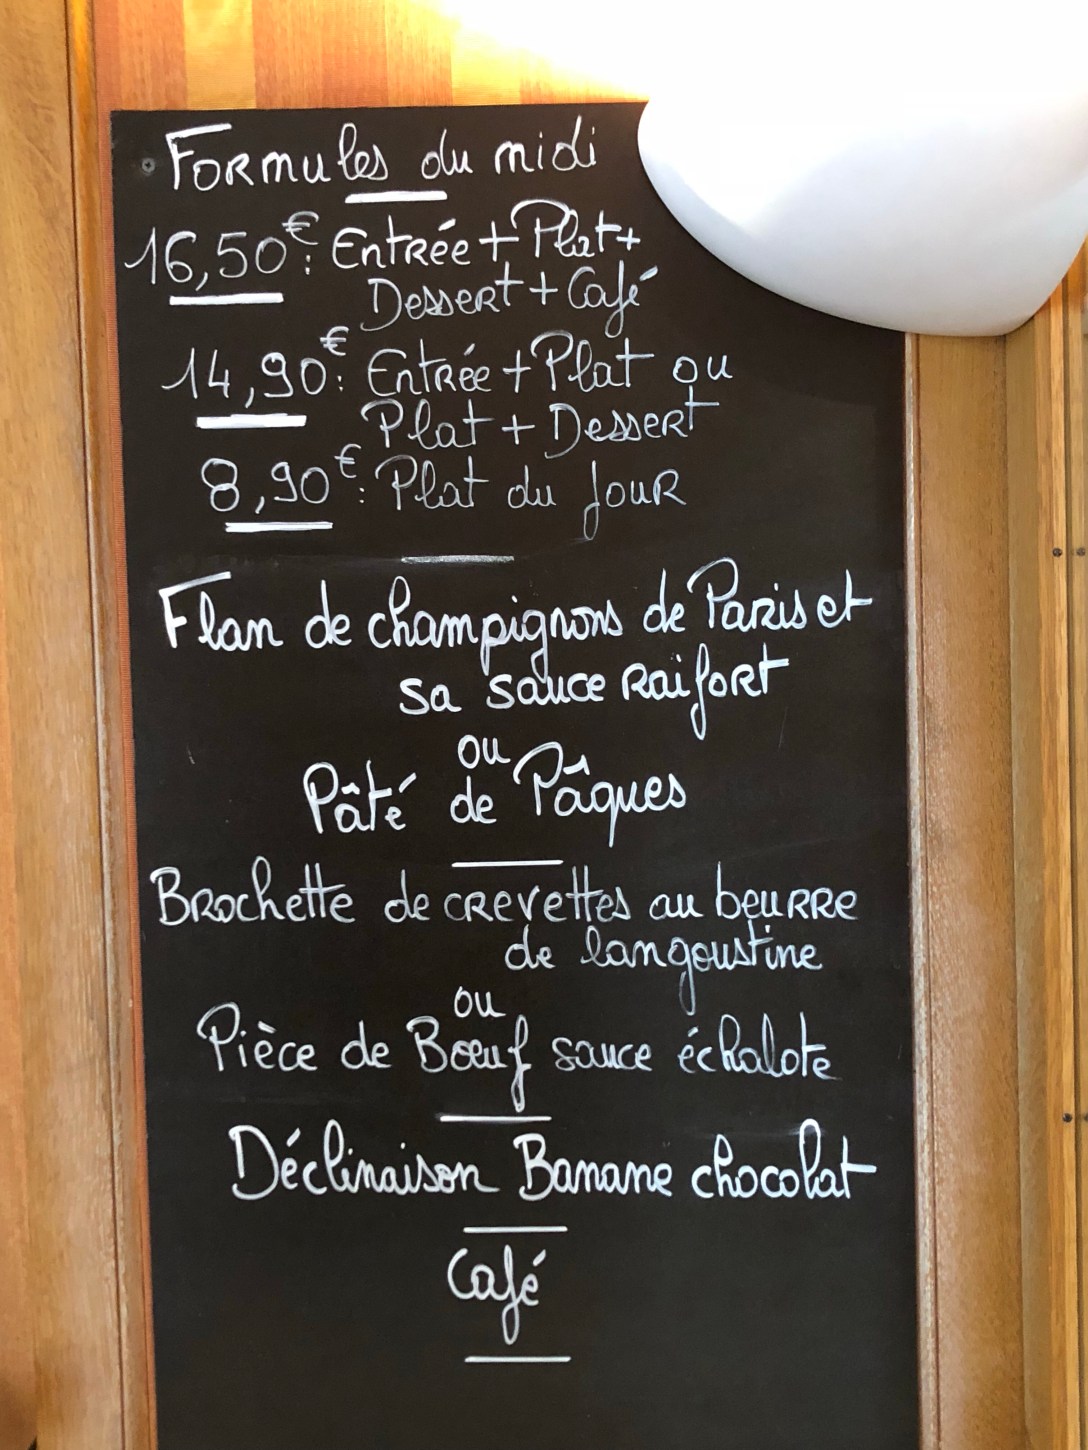 Formules du midi
16,50€: Entrée + Plat +
Dessert + Café
14,90€: Entrée + Plat ou
Plat + Dessert
8,90€: Plat du jour
Flan de champignons de Paris et
sa sauce raifort
ou
Pâté de Pâques
Brochette de crevettes au beurre
de langoustine
ou
Pièce de Bœuf sauce échalote
Déclinaison Banane chocolat
Café